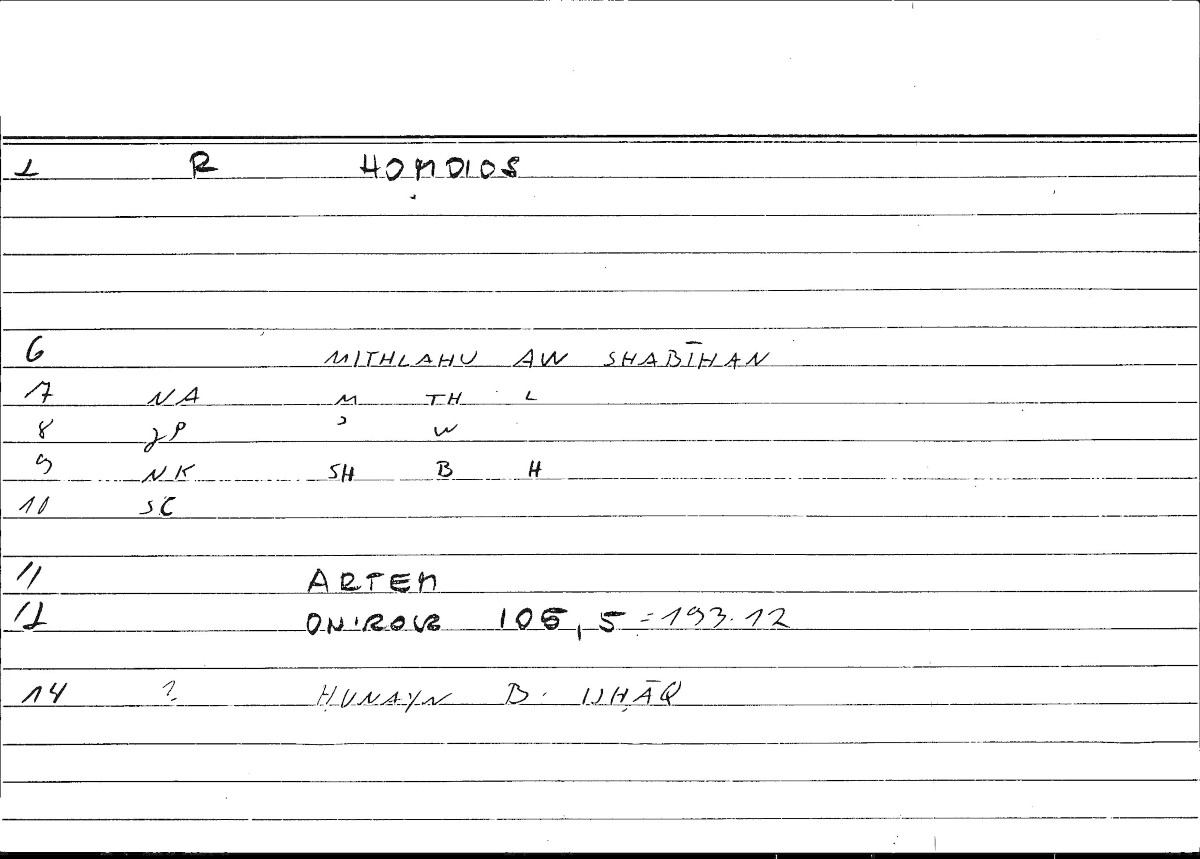 1 R HOMOIOS
6 MITHLAHU AW SHABĪHAN
7 NA M TH L
8 JP ʾ W
9 NK SH B H
10 SC
11 ARTEM
12 ONIROCR 106, 5 = 193.12
14 ? ḤUNAYN B. ISḤĀQ